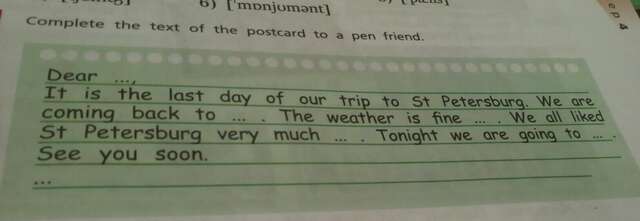 6) ['mɒnjʊmənt]
Complete the text of the postcard to a pen friend.
Dear ...,
It is the last day of our trip to St Petersburg. We are
coming back to ... . The weather is fine ... . We all liked
St Petersburg very much ... . Tonight we are going to ... .
See you soon.
...